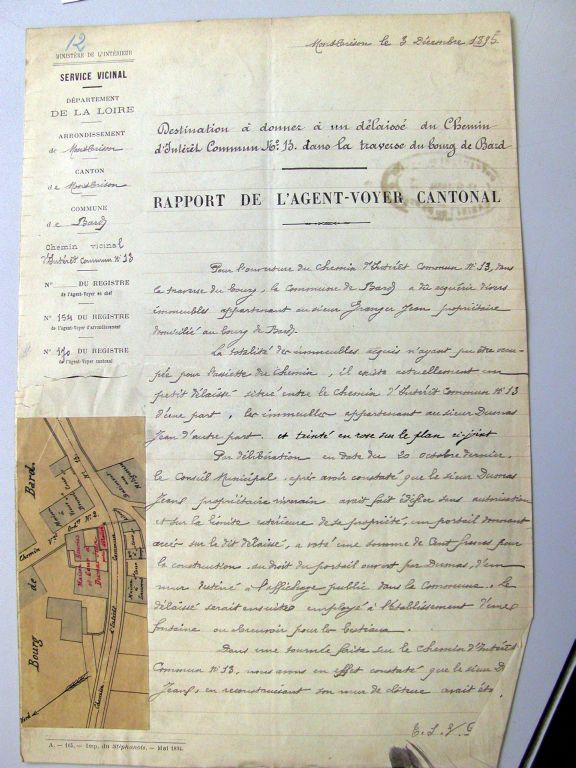 12
MINISTÈRE DE L'INTÉRIEUR
SERVICE VICINAL
DÉPARTEMENT
DE LA LOIRE
ARRONDISSEMENT
de Montbrison
CANTON
de Montbrison
COMMUNE
de Bard
Chemin vicinal
d'Intérêt Commun N° 13
N° DU REGISTRE
de l'Agent-Voyer en chef
N° 154 DU REGISTRE
de l'Agent-Voyer d'arrondissement
N° 190 DU REGISTRE
de l'Agent-Voyer cantonal
Montbrison le 3 Décembre 1895
Destination à donner à un délaissé du Chemin
d'Intérêt Commun N° 13. dans la traverse du bourg de Bard
RAPPORT DE L'AGENT-VOYER CANTONAL
Pour l'ouverture du Chemin d'Intérêt Commun N° 13, dans
la traverse du bourg, la Commune de Bard a dû acquérir divers
immeubles appartenant au sieur Granger Jean propriétaire
domicilié au bourg de Bard.
La totalité des immeubles acquis n'ayant pu être occu-
pée pour l'assiette du chemin, il existe actuellement un
petit délaissé situé entre le Chemin d'Intérêt Commun N° 13
d'une part, les immeubles appartenant au sieur Dumas
Jean d'autre part. et teinté en rose sur le plan ci-joint
Par délibération en date du 20 octobre dernier,
le Conseil Municipal, après avoir constaté que le sieur Dumas
Jean, propriétaire riverain avait fait édifier sans autorisation
et sur la limite extérieure de sa propriété, un portail donnant
accès sur le dit délaissé, a voté une somme de Cent francs pour
la construction, au droit du portail ouvert par Dumas, d'un
mur destiné à l'affichage public dans la Commune. Le
délaissé serait ensuite employé à l'établissement d'une
fontaine ou abreuvoir pour les bestiaux.
Dans une tournée faite sur le chemin d'Intérêt
Commun N° 13, nous avons en effet constaté que le sieur D
Jean, en reconstruisant son mur de clôture avait été
T. S. V. P
Bourg de Bard.
Chemin
Nord
Maison Dumas
Chemin d'Intérêt Commun
A. — 165. — Imp. du Stéphanois. — Mai 1894.